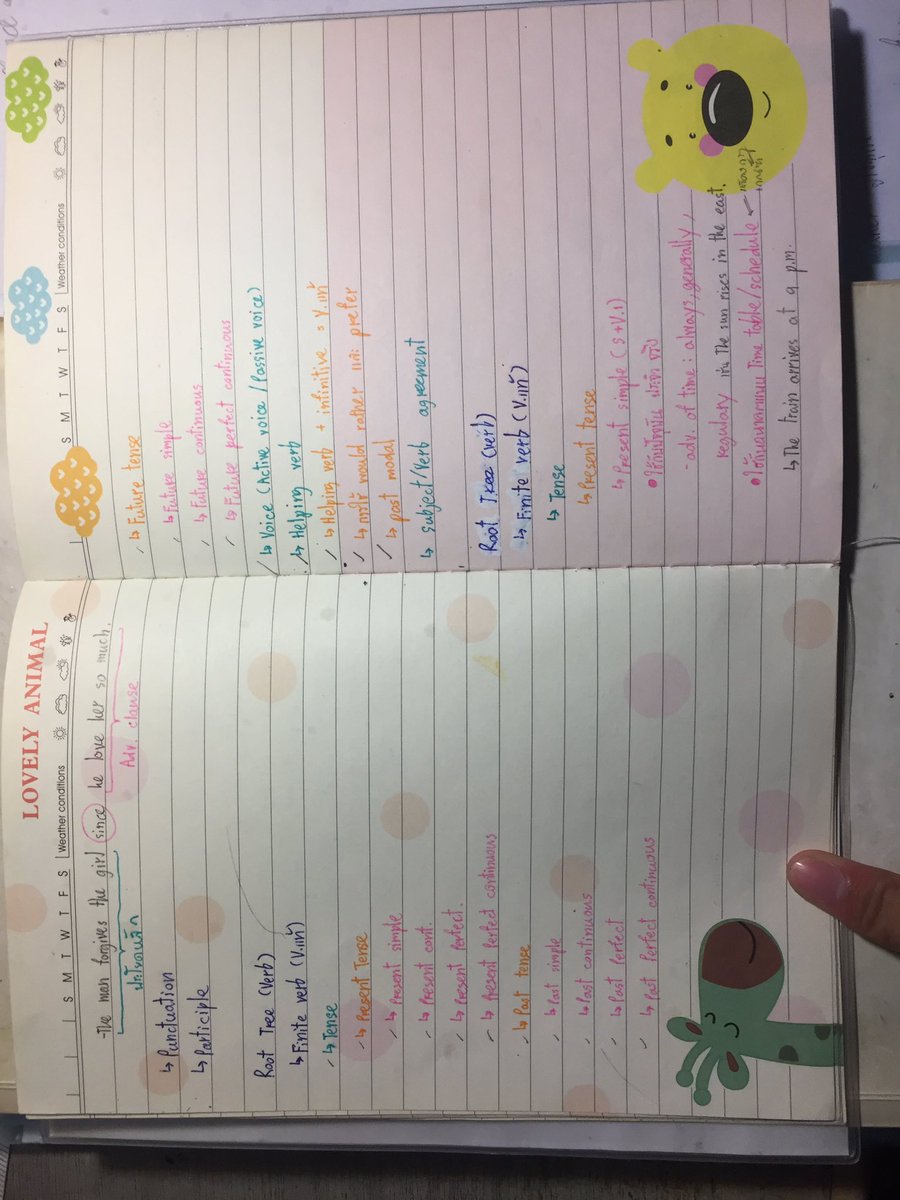 LOVELY ANIMAL
S M T W T F S Weather conditions
-The man forgives the girl since he love her so much.
ประโยคหลัก Adv. clause
↳ Punctuation
↳ Participle
Root Tree (Verb)
↳ Finite verb (V.แท้)
✓ ↳ Tense
✓ ↳ Present Tense
✓ ↳ Present simple
✓ ↳ Present cont.
✓ ↳ Present Perfect.
✓ ↳ Present Perfect continuous
✓ ↳ Past tense
✓ ↳ Past simple
✓ ↳ Past continuous
✓ ↳ Past Perfect
✓ ↳ Past Perfect continuous
S M T W T F S Weather conditions
✓ ↳ Future tense
✓ ↳ Future simple
✓ ↳ Future continuous
✓ ↳ Future perfect continuous
✓ ↳ Voice (Active voice / Passive voice)
✓ ↳ Helping verb
✓ ↳ Helping verb + infinitive = V.แท้
✓ ↳ การใช้ would rather และ prefer
✓ ↳ past modal
↳ subject/Verb agreement
Root Tree (Verb)
↳ Finite verb (V.แท้)
↳ Tense
↳ Present tense
↳ Present simple (s+V.1)
• ใช้กับ
- adv. of time : always, generally,
regulary เช่น The sun rises in the east.
• Time table/schedule ←
↳ The train arrives at 9 p.m.